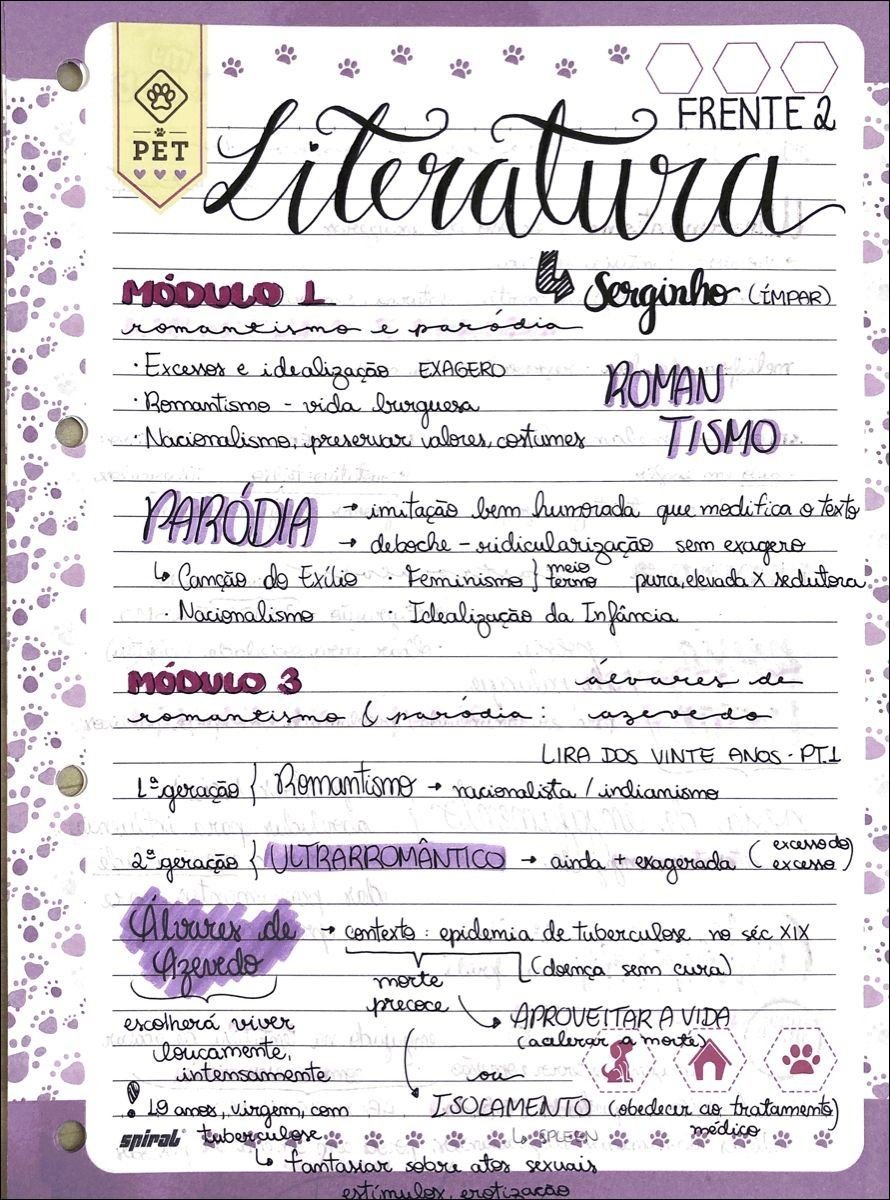 FRENTE 2
PET
Literatura
Serginho (ÍMPAR)
MÓDULO 1
romantismo e paródia
· Excessos e idealização EXAGERO
· Romantismo - vida burguesa
· Nacionalismo, preservar valores, costumes
ROMAN
TISMO
PARÓDIA → imitação bem humorada que modifica o texto
→ deboche - ridicularização sem exagero
↳ Canção do Exílio · Feminismo } meio termo pura, elevada X sedutora
· Nacionalismo · Idealização da Infância
MÓDULO 3
romantismo & paródia: álvares de
azevedo
LIRA DOS VINTE ANOS - PT.1
1ª geração { Romantismo → nacionalista / indianismo
2ª geração { ULTRARROMÂNTICO → ainda + exagerada (excesso do excesso)
Álvares de
Azevedo
→ contexto: epidemia de tuberculose no séc XIX
(doença sem cura)
morte
precoce
APROVEITAR A VIDA
(acelerar a morte)
ou
ISOLAMENTO (obedecer ao tratamento)
médico
↳ SPLEEN
escolherá viver
loucamente,
intensamente
! 19 anos, virgem, com
tuberculose
↳ fantasiar sobre atos sexuais
estímulos, erotização
spiral